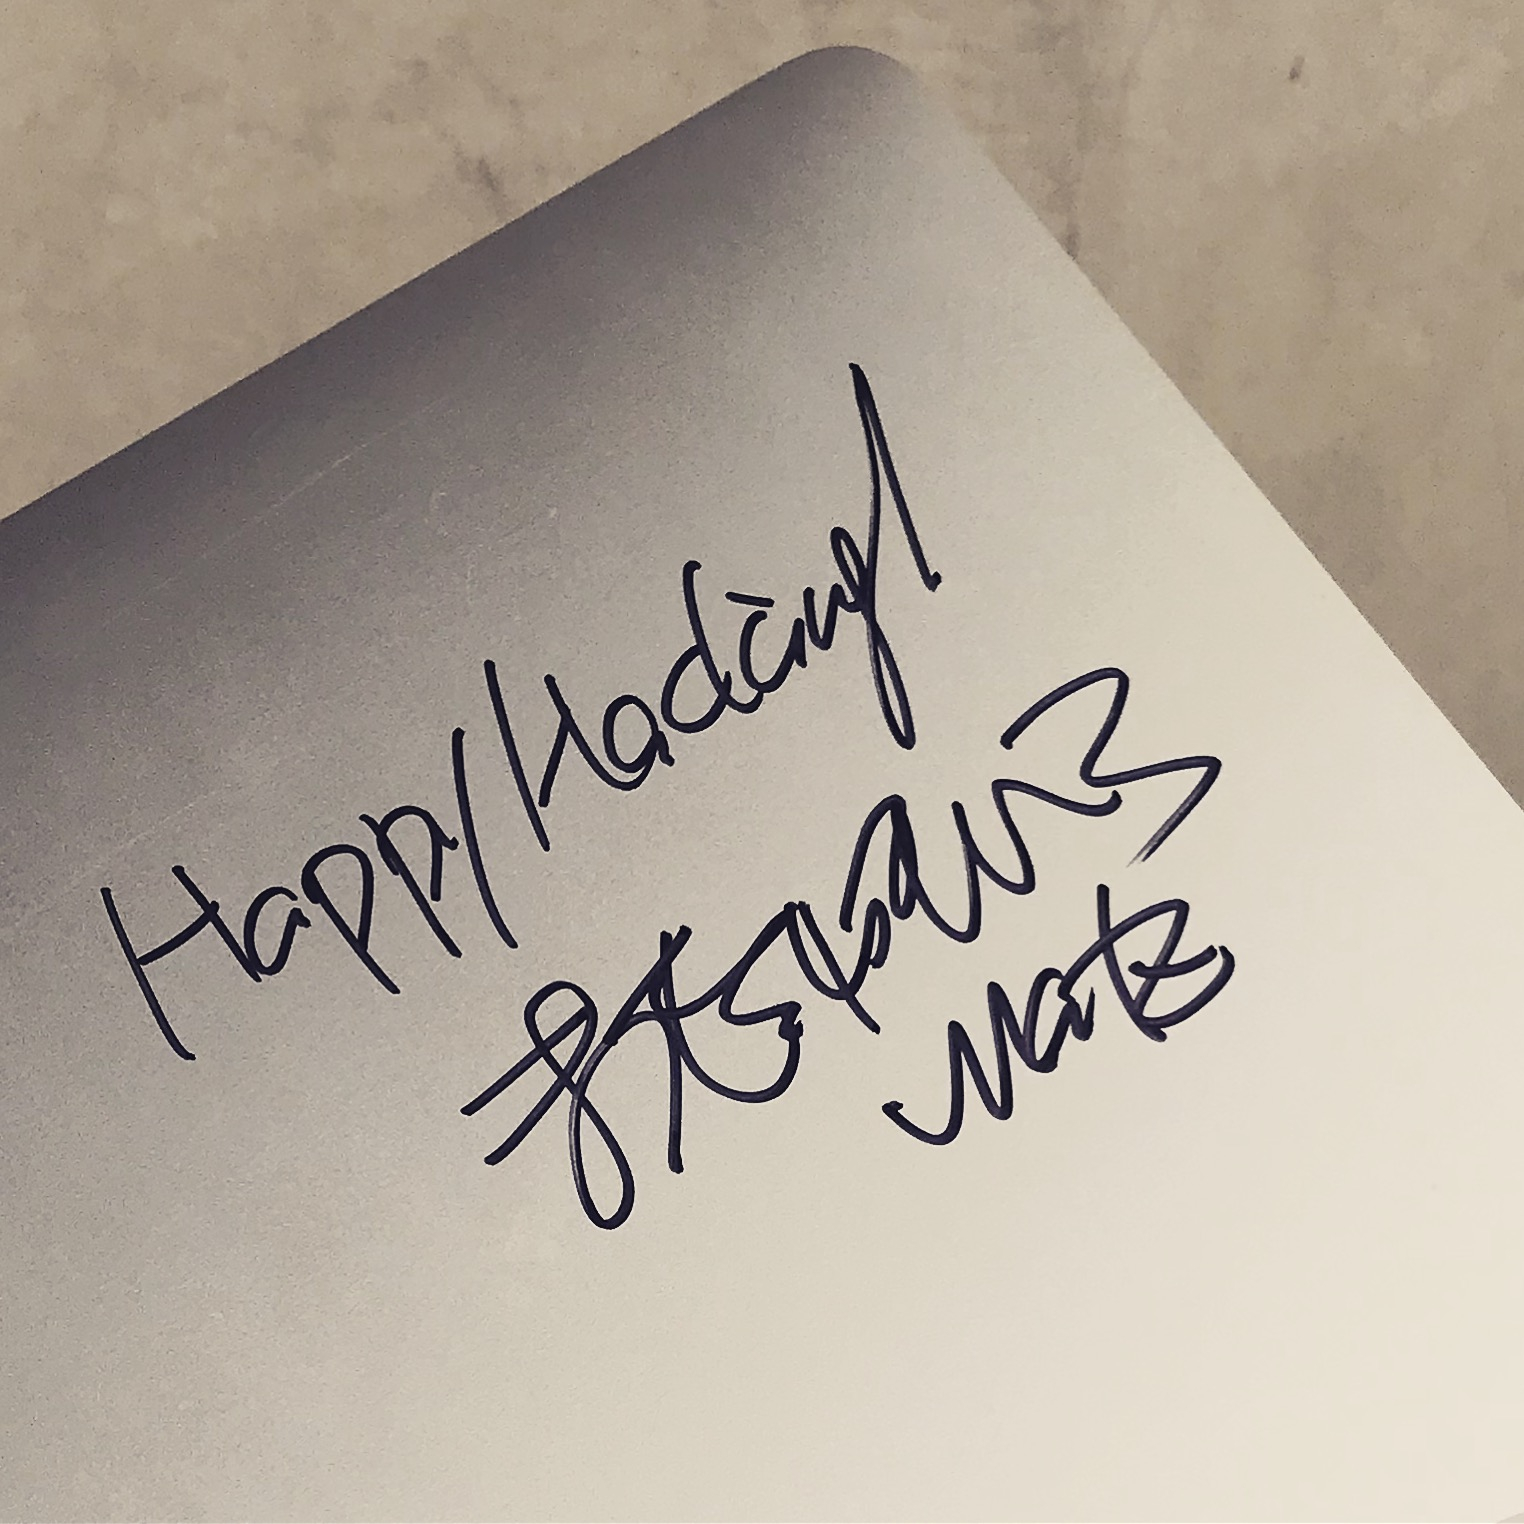 Happy Hacking!
まつもとゆきひろ
Matz